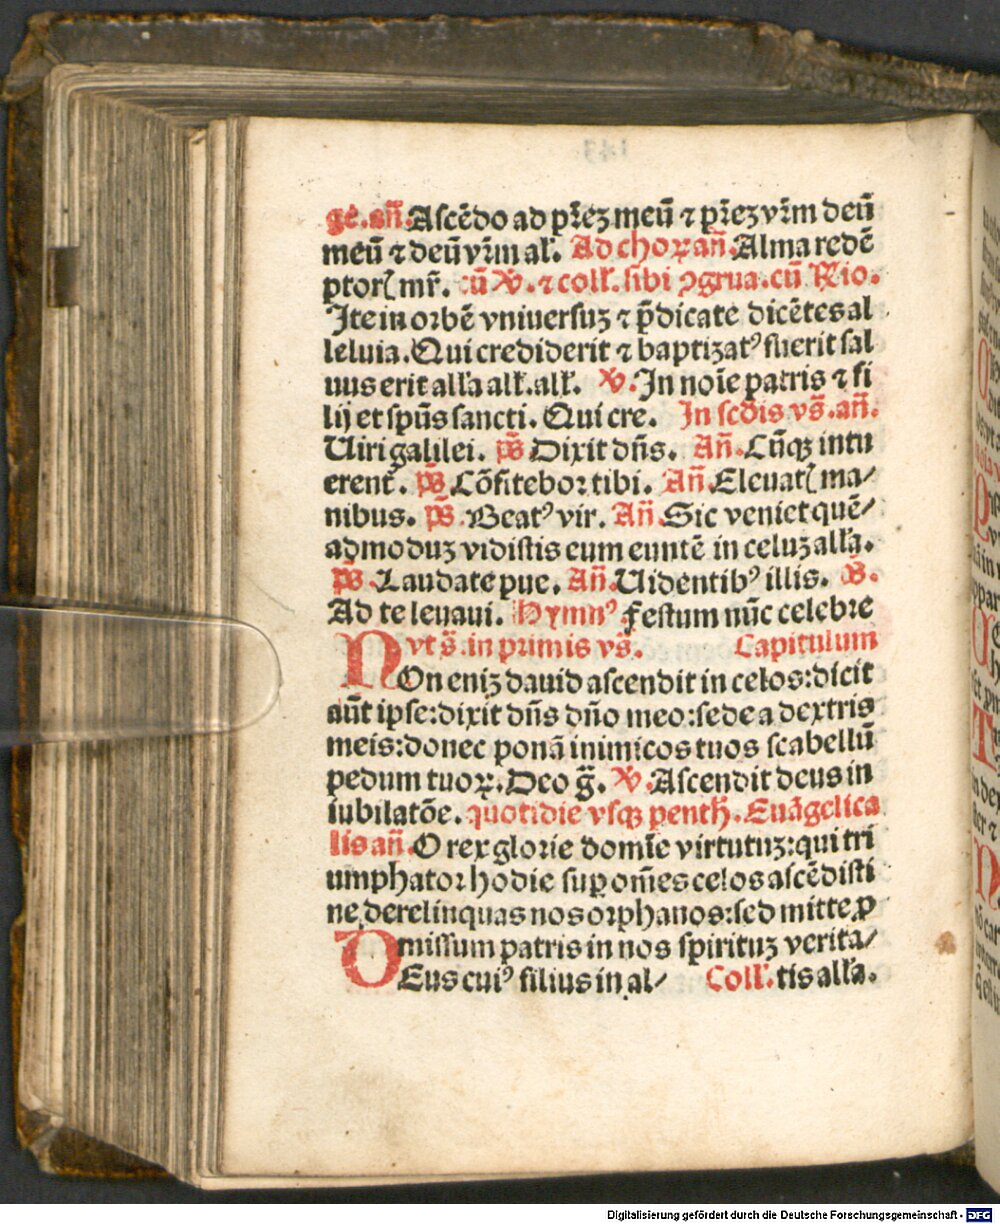 ge. añ. Aſcẽdo ad pr̃eʒ meũ ⁊ pr̃eʒ vr̃m deũ
meũ ⁊ deũ vr̃m al'. Ad choꝝ añ. Alma redẽ
ptorꝭ mr̃. cũ ℣. ⁊ coll'. ſibi ꝯgrua. cũ Rio.
Ite in orbẽ vniuerſuʒ ⁊ p̃dicate dicẽtes al
leluia. Qui crediderit ⁊ baptizatꝰ fuerit ſal
uus erit all'a alk. alk. ℣. In noĩe patris ⁊ fi
lij et ſpũs ſancti. Qui cre. In ſcd̃is vs̃. añ.
Uiri galilei. ps̃ Dixit dñs. Añ. Cũqꝫ intu
erent̃. ps̃. Cõfitebor tibi. Añ. Eleuatꝭ ma⸗
nibus. ps̃. Beatꝰ vir. Añ. Sic veniet quẽ⸗
admoduʒ vidiſtis eum euntẽ in celuʒ all'a.
ps̃. Laudate pue. Añ. Uidentibꝰ illis. ps̃.
Ad te leuaui. Hymnꝰ. Feſtum nũc celebre
vt s̃. in primis vs̃. Capitulum
NOn eniʒ dauid aſcendit in celos: dicit
aũt ipſe: dixit dñs dño meo: ſede a dextris
meis: donec ponã inimicos tuos ſcabellũ
pedum tuoꝝ. Deo g̃. ℣. Aſcendit deus in
iubilatõe. quotidie vſqꝫ penth̃. Euãgelica
lis añ. O rex glorie domĩe virtutuʒ: qui tri
umphator hodie ſuꝑ om̃es celos aſcẽdiſti
ne derelinquas nos orphanos: ſed mitte ꝓ
miſſum patris in nos ſpirituʒ verita⸗
DEus cuiꝰ filius in al⸗ Coll'. tis all'a.
Digitalisierung gefördert durch die Deutsche Forschungsgemeinschaft - DFG